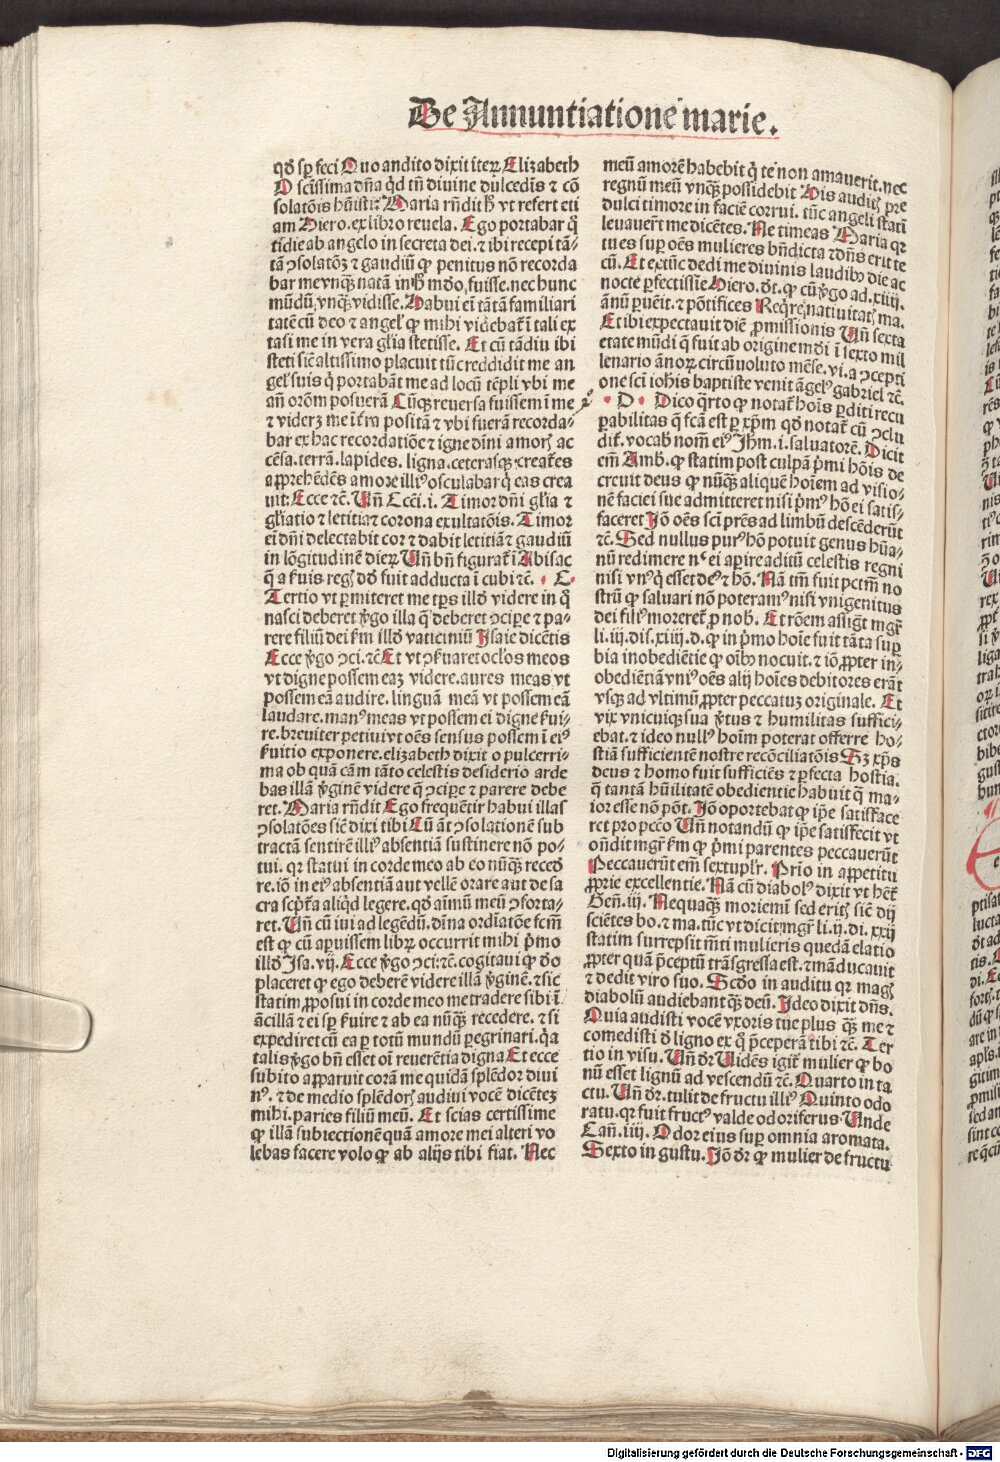 De Annuntiatione marie.
qd̄ sp̄ feci Quo audito dixit iteꝝ Elizabeth
O scissima dn̄a qd̓ tn̄ diuine dulcedīs ⁊ cō
solatōis hūisti: Maria rn̄dit ħ vt refert eti
am Hiero. ex libro reuela. Ego portabar q̄
tidie ab angelo in secreta dei. ⁊ ibi recepi tā⸗
tā ꝯsolatōꝫ ⁊ gaudiū ꝙ penitus nō recorda
bar me vnqꝫ natā in ħ mdo̓ fuisse. nec hunc
mūdū vnqꝫ vidisse. Habui eī tātā familiari
tatē cū deo ⁊ angel̓ ꝙ mihi videbat̃ ī tali ex
tasi me in vera gl̓ia stetisse. Et cū tādiu ibi
steti sic̄ altissimo placuit tūc reddidit me an
gel̓ suis q̓ portabāt me ad locū tēpli vbi me
an̄ orōm posuerā Cūqꝫ reuersa fuissem ī me
⁊ viderꝫ me ī tr̄a positā ⁊ vbi fuerā recorda⸗
bar ex hac recordatiōe ⁊ igne diīni amorꝭ ac
cēsa. terrā. lapides. ligna. ceterasqꝫ creat̃es
apprehēdēs amore illiꝰ osculabar q̓ eas crea
uit: Ecce ⁊c̄. Vn̄ Ecci. i. Timor dn̄i gl̓ia ⁊
gl̓iatio ⁊ letitia ⁊ corona exultatōis. Timor
ei dn̄i delectabit cor ⁊ dabit letitiā ⁊ gaudiū
in lōgitudinē dieꝝ Vn̄ bn̄ figurat̃ ī Abisac
q̄ a ẜuis regꝭ dd̓ fuit adducta ī cubi ⁊c̄. • C •
Tertio vt ꝑmitteret me tp̄s illd̓ videre in q̄
nasci deberet v̓go illa q̄ deberet ꝯcipe ⁊ pa⸗
rere filiū dei ẜm illd̓ vaticiniū Isaie dicētis
Ecce v̓go ꝯci. ⁊c̄ Et vt ꝯẜuaret ocl̓os meos
vt digne possem eaꝫ videre. aures meas vt
possem eā audire. linguā meā vt possem eā
laudare. manꝰ meas vt possem ei digne ẜui⸗
re. breuiter petiui vt oēs sensus possem ī eiꝰ
ẜuitio exponere. elizabeth dixit o pulcerri⸗
ma ob quā cām tāto celestis desiderio arde
bas illā v̓ginē videre q̄ ꝯcipe ⁊ parere debe
ret. Maria rn̄dit Ego frequēt̓ habui illas
ꝯsolatōes sic̄ dixi tibi Cū āt ꝯsolationē sub
tractā sentirē illiꝰ absentiā sustinere nō po⸗
tui. qr statui in corde meo ab eo nūqꝫ recedē
re. iō in eiꝰ absentiā aut vellē orare aut de sa
cra scpt̓a aliqd̓ legere. qd̓ aīmū meū ꝯforta⸗
ret. Vn̄ cū iui ad legēdū. diīna ordīatōe fcm̄
est ꝙ cū aꝑuissem libꝝ occurrit mihi pm̓o
illd̓ Isa. vij. Ecce v̓go ꝯci: ⁊c̄. cogitaui ꝙ dō
placeret ꝙ ego deberē videre illā v̓ginē. ⁊ sic
statim ꝓposui in corde meo me tradere sibi ī
ācillā ⁊ ei sp̄ ẜuire ⁊ ab ea nūqꝫ recedere. ⁊ si
expediret cū ea ꝑ totū mundū ꝑegrinari. qa
talis v̓go bn̄ esset oī reuerētia digna Et ecce
subito apparuit corā me quidā splēdor diui
nꝰ. ⁊ de medio splēdorꝭ audiui vocē dicēteꝫ
mihi. paries filiū meū. Et scias certissime
ꝙ illā subiectionē quā amore mei alteri vo
lebas facere volo ꝙ ab alijs tibi fiat. Nec
meū amorē habebit q̓ te non amauerit. nec
regnū meū vnqꝫ possidebit His auditꝭ pre
dulci timore in faciē corrui. tūc angeli stati
leuauer̄t me dicētes. Ne timeas Maria qr
tu es suꝑ oēs mulieres bn̄dicta ⁊ dn̄s erit te
cū. Et extūc dedi me diuinis laudibꝫ die ac
nocte ꝑfectissie Hiero. dt̄. ꝙ cū v̓go ad. xiiij.
ānū ꝑuēit. ⁊ pōtifices Reqr̄e natiuitatꝭ ma.
Et ibi expectauit diē ꝓmissionis Vn̄ sexta
etate mūdi q̄ fuit ab origine mdi̓ ī sexto mil
lenario ānoꝝ circū uoluto mēse. vi. a ꝯcepti
one sci iohis baptiste venit āgelꝰ gabriel ⁊c̄.
• D • Dico q̄rto ꝙ notat̃ hoīs ꝑditi recu
ꝑabilitas q̄ fcā est ꝑ xp̄m qd̓ notat̃ cū ꝯclu
dit̃. vocab̓ nom̄ eiꝰ Jhm̄. i. saluatorē. Dicit
em̄ Amb. ꝙ statim post culpā pm̓i hoīs de
creuit deus ꝙ nūqꝫ aliquē hoīem ad visio⸗
nē faciei sue admitteret nisi pm̓ꝰ hō ei satis⸗
faceret Iō oēs scī prēs ad limbū descēderūt
⁊c̄. Sed nullus purꝰ hō potuit genus hūa⸗
nū redimere nͨ ei aꝑire aditū celestis regni
nisi vnꝰ q̓ esset deꝰ ⁊ hō. Nā tm̄ fuit pctm̄ no
strū ꝙ saluari nō poteramꝰ nisi vnigenitus
dei filiꝰ moreret̃ ꝓ nob̓. Et rōem assigt̃ mgr̄
li. iij. dis. xiiij. d. ꝙ in pm̓o hoīe fuit tāta suꝑ
bia inobediētie ꝙ oībꝫ nocuit. ⁊ iō ꝓpter in⸗
obediētiā vniꝰ oēs alij hoīes debitores erāt
vsqꝫ ad vltimū ꝓpter peccatuꝫ originale. Et
vix vnicuiqꝫ sua v̓tus ⁊ humilitas suffici⸗
ebat. ⁊ ideo nullꝰ hoīm poterat offerre ho⸗
stiā sufficientē nostre recōciliatōis Sꝫ xp̄s
deus ⁊ homo fuit sufficiēs ⁊ ꝑfecta hostia.
q̄ tantā hūilitatē obedientie habuit q̄ ma⸗
ior esse nō pōt. Iō oportebat ꝙ ip̄e satisface
ret pro pccō Vn̄ notandū ꝙ ip̄e satisfecit vt
on̄dit mgr̄ ẜm ꝙ pm̓i parentes peccauerūt
Peccauerūt em̄ sextupl̓r. Prīo in appetitu
ꝓprie excellentie. Nā cū diabolꝰ dixit vt hēt̃
Gen̄. iij. Nequaqꝫ moriemī sed eritꝭ sic̄ dij
sciētes bo. ⁊ ma. tūc vt dicit mgr̄ li. ij. di. xxij
statim surrepsit mēti mulieris quedā elatio
ꝓpter quā p̄ceptū trāsgressa est. ⁊ māducauit
⁊ dedit viro suo. Scdo̓ in auditu qr magꝭ
diabolū audiebant qꝫ deū. Ideo dixit dn̄s.
Quia audisti vocē vxoris tue plus qꝫ me ⁊
comedisti d̓ ligno ex q̓ p̄ceperā tibi ⁊c̄. Ter
tio in visu. Vn̄ dr̄ Vidēs igit̃ mulier ꝙ bo
nū esset lignū ad vescendū ⁊c̄. Quarto in ta
ctu. Vn̄ dr̄. tulit de fructu illiꝰ Quinto odo
ratu. qr fuit fructꝰ valde odoriferus. Vnde
Can̄. iiij. Odor eius suꝑ omnia aromata.
Sexto in gustu. Iō dr̄ ꝙ mulier de fructu
Digitalisierung gefördert durch die Deutsche Forschungsgemeinschaft - DFG